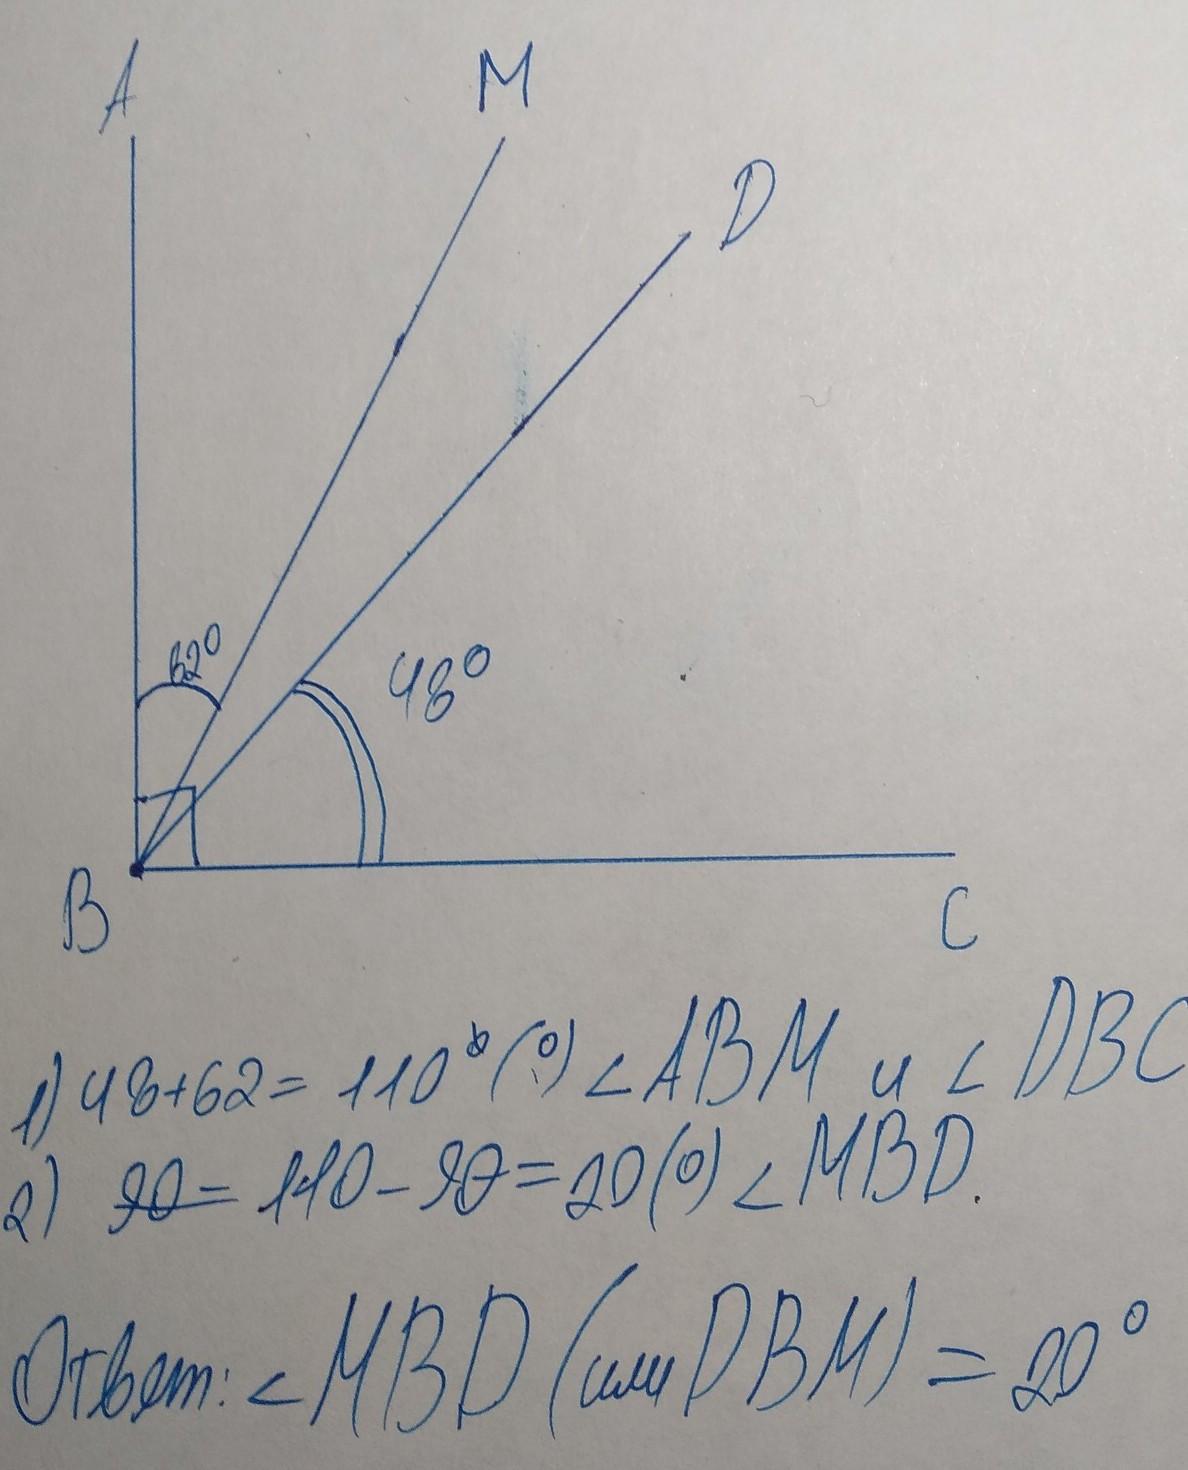 A
M
D
62°
48°
B
C
1) 48+62= 110° (°) ∠ABM и ∠DBC
2) 90= 110-90=20(°) ∠MBD.
Ответ: ∠MBD (или DBM) = 20°